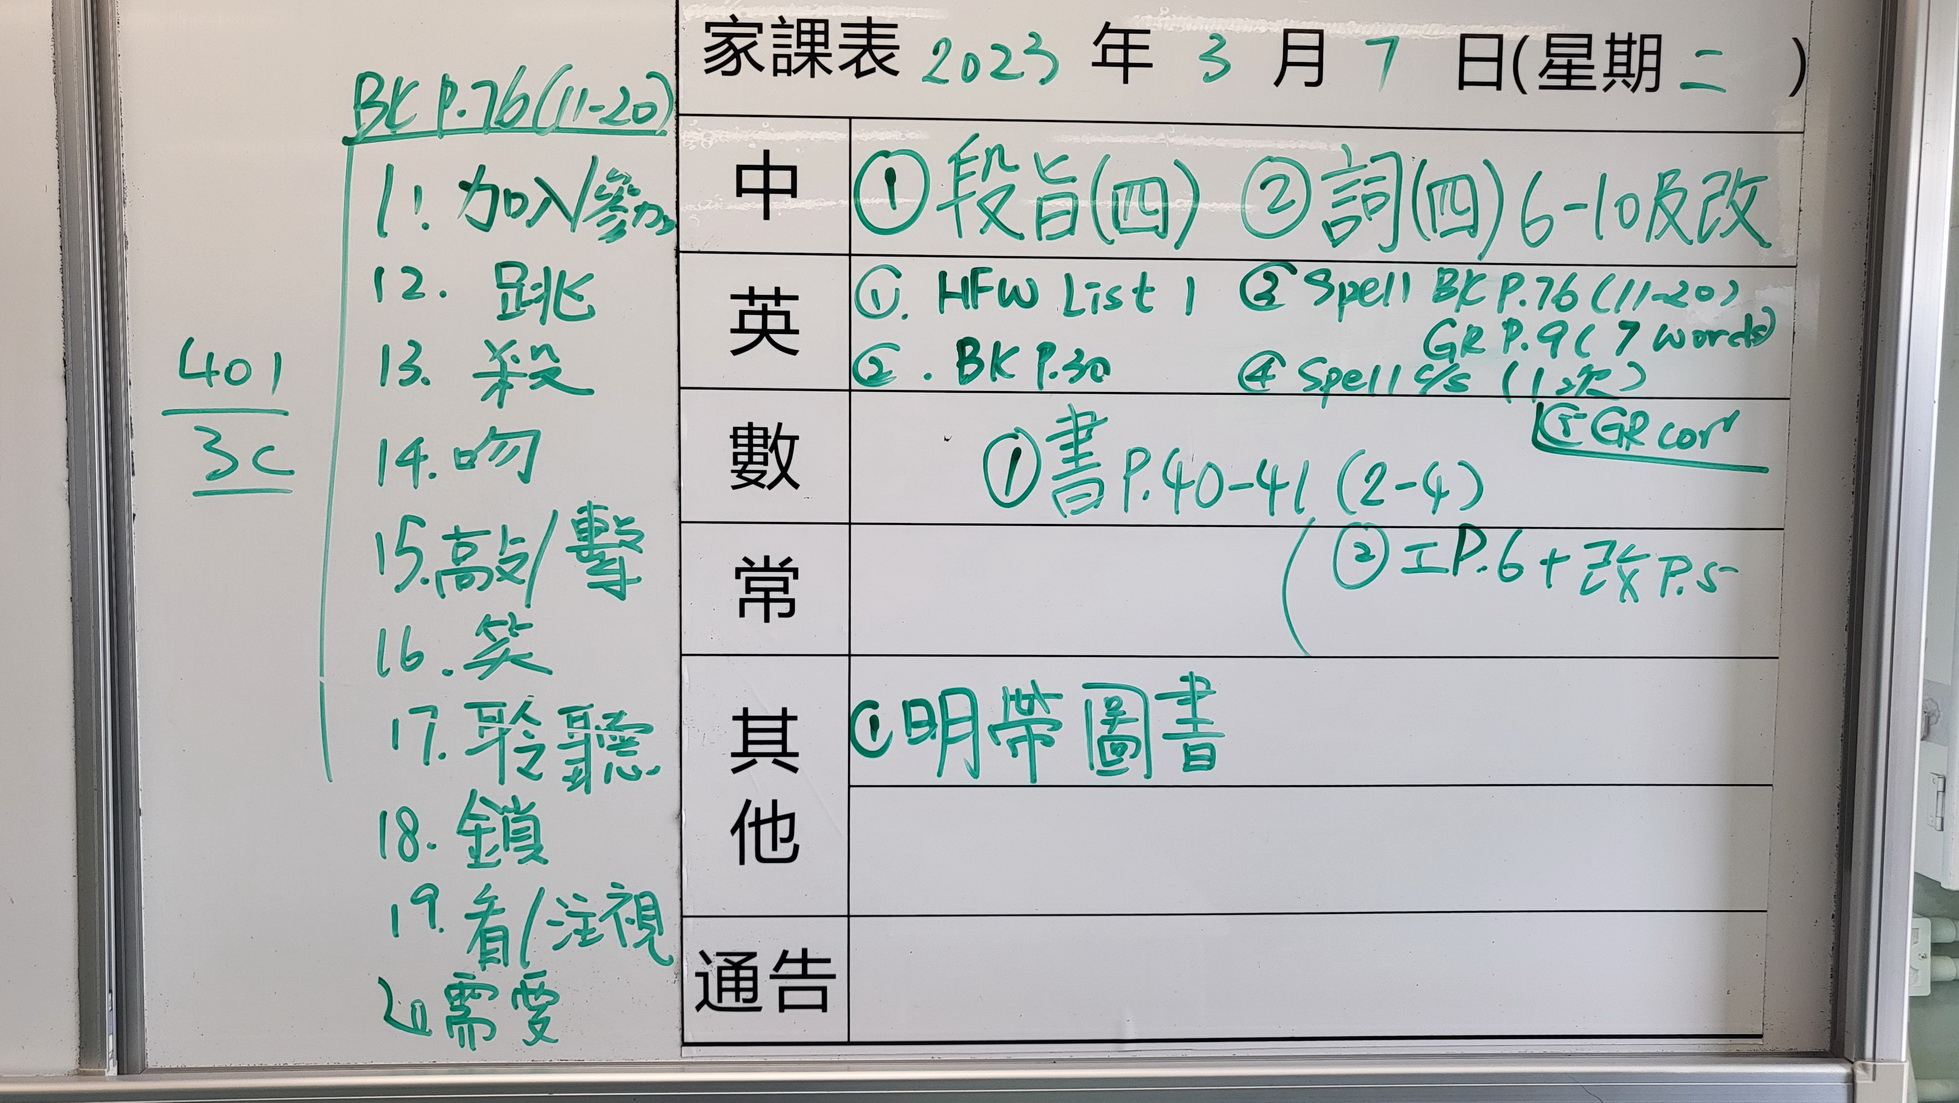 家課表 2023 年 3 月 7 日(星期二)
BK P.76(11-20)
11. 加入/參加
12. 跳
13. 殺
14. 吻
15. 高攴/擊
16. 笑
17. 聆聽
18. 鎖
19. 看/注視
20 需要
401
3C
中 ①段旨(四) ②詞(四)6-10及改
英 ①. HFW List 1 ③ Spell BK P.76 (11-20)
GR P.9 (7 words)
②. BK P.30 ④ Spell c/s (1次)
⑤ GR corr
數 ①書P.40-41 (2-4)
②工P.6+改P.5
常
其他 ①明帶圖書
通告